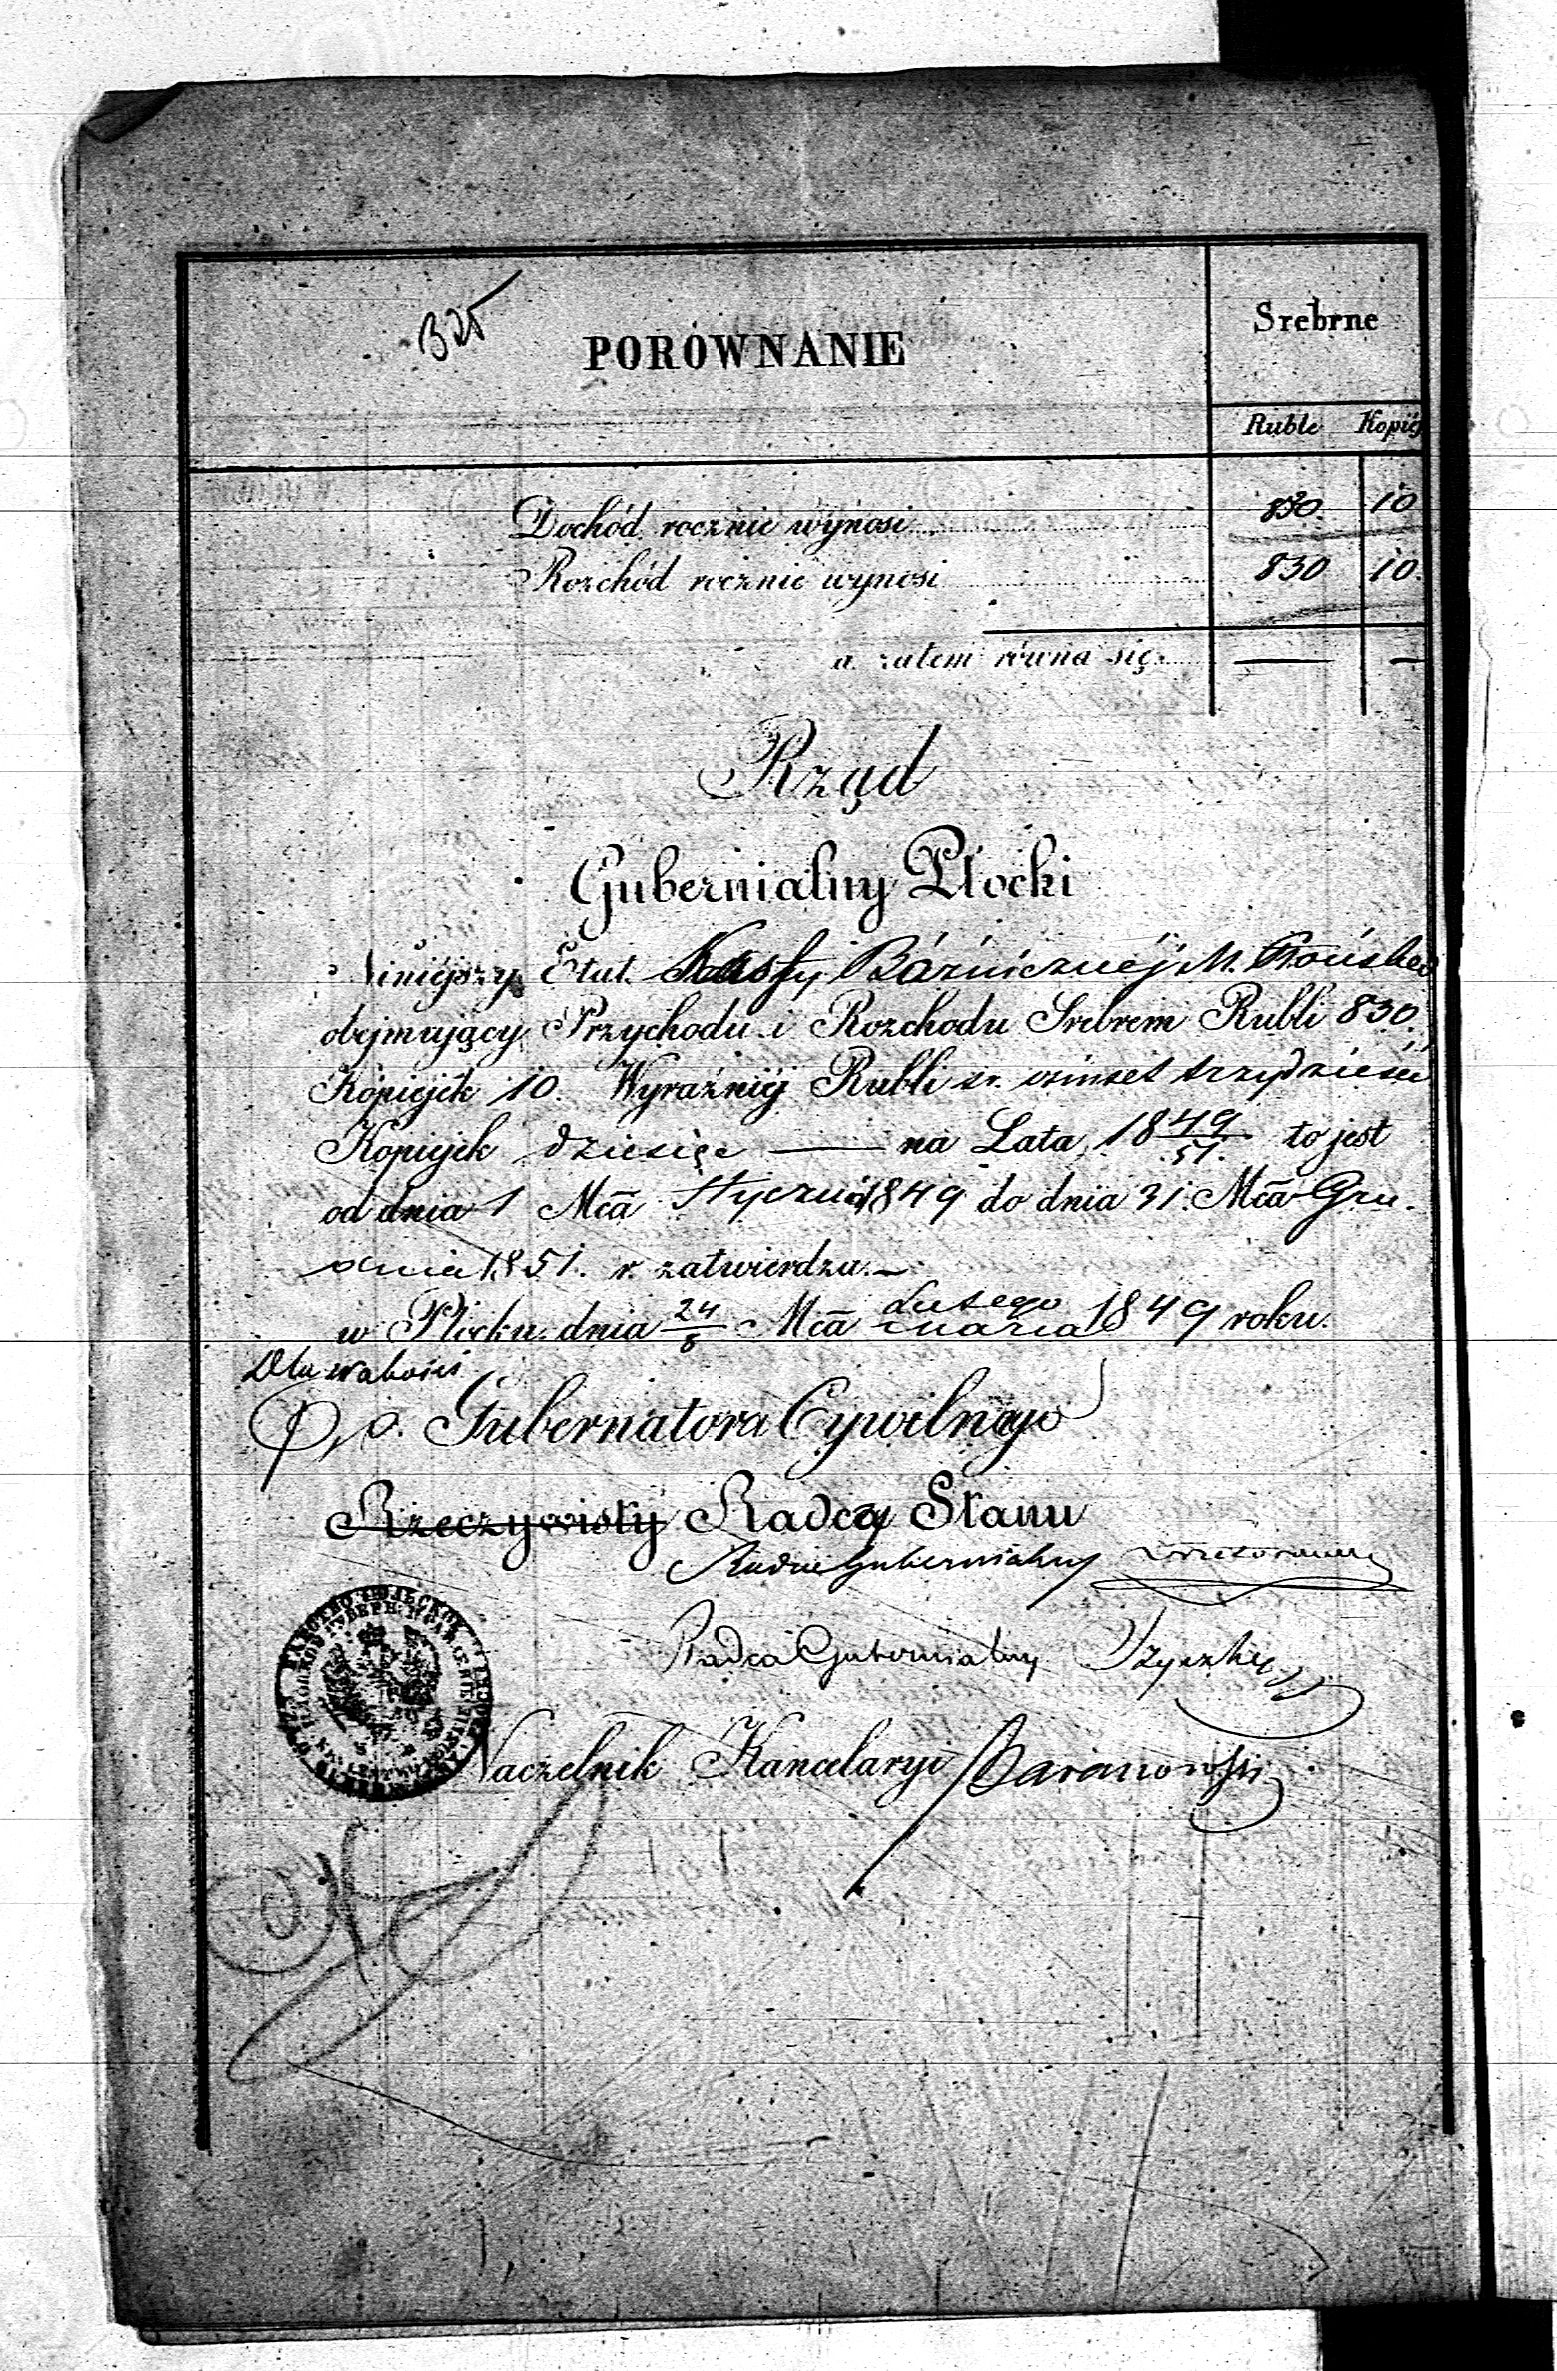 325
PORÓWNANIE
Srebrne
Ruble Kopiéj
Dochód rocznie wynosi 830. 10
Rozchód rocznie wynosi 830 10.
a zatem równa się — —
Rząd
Gubernialny Płocki
Niniejszy Etat Kassy Bóżnicznéj M.
obejmujący Przychodu i Rozchodu Srebrem Rubli 830.
Kopiejek 10. Wyraźniéj Rubli sr. ośmset trzydzieści
Kopiejek dziesięć — na Lata 1849/51. to jest
od dnia 1 Mca Stycznia 1849 do dnia 31. Mca Gru-
dnia 1851. r. zatwierdza.—
w Płocku dnia 24/8 Mca Lutego/Marca 1849 roku.
P. o. Gubernatora Cywilnego
Rzeczywisty Radca Stanu
Radca Gubernialny
Radca Gubernialny
Naczelnik Kancelaryi Baranowski